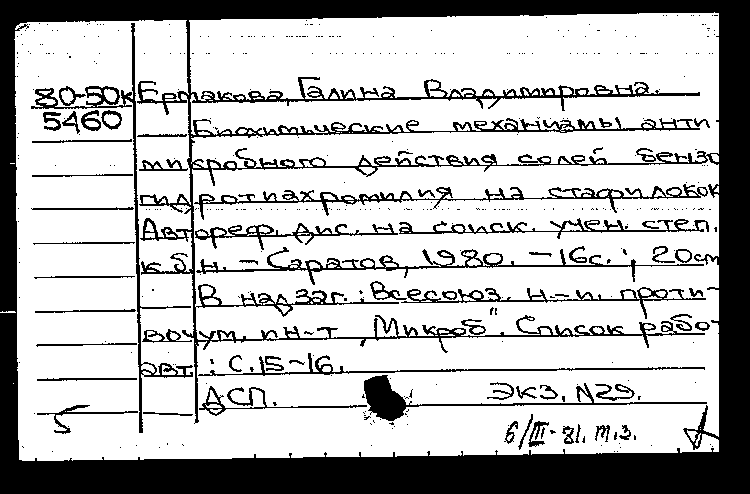 80-50к Ермакова, Галина Владимировна.
5460 Биохимические механизмы анти-
микробного действия солей бензо
гидротиахромилия на стафилокок
Автореф. дис. на соиск. учен. степ.
к.б.н. - Саратов, 1980. - 16с.; 20см
В надзаг.: Всесоюз. н.-и. проти-
вочум. ин-т „Микроб". Список работ
авт.: С.15-16.
ДСП. Экз. N29.
5 6/III-81. т.з.